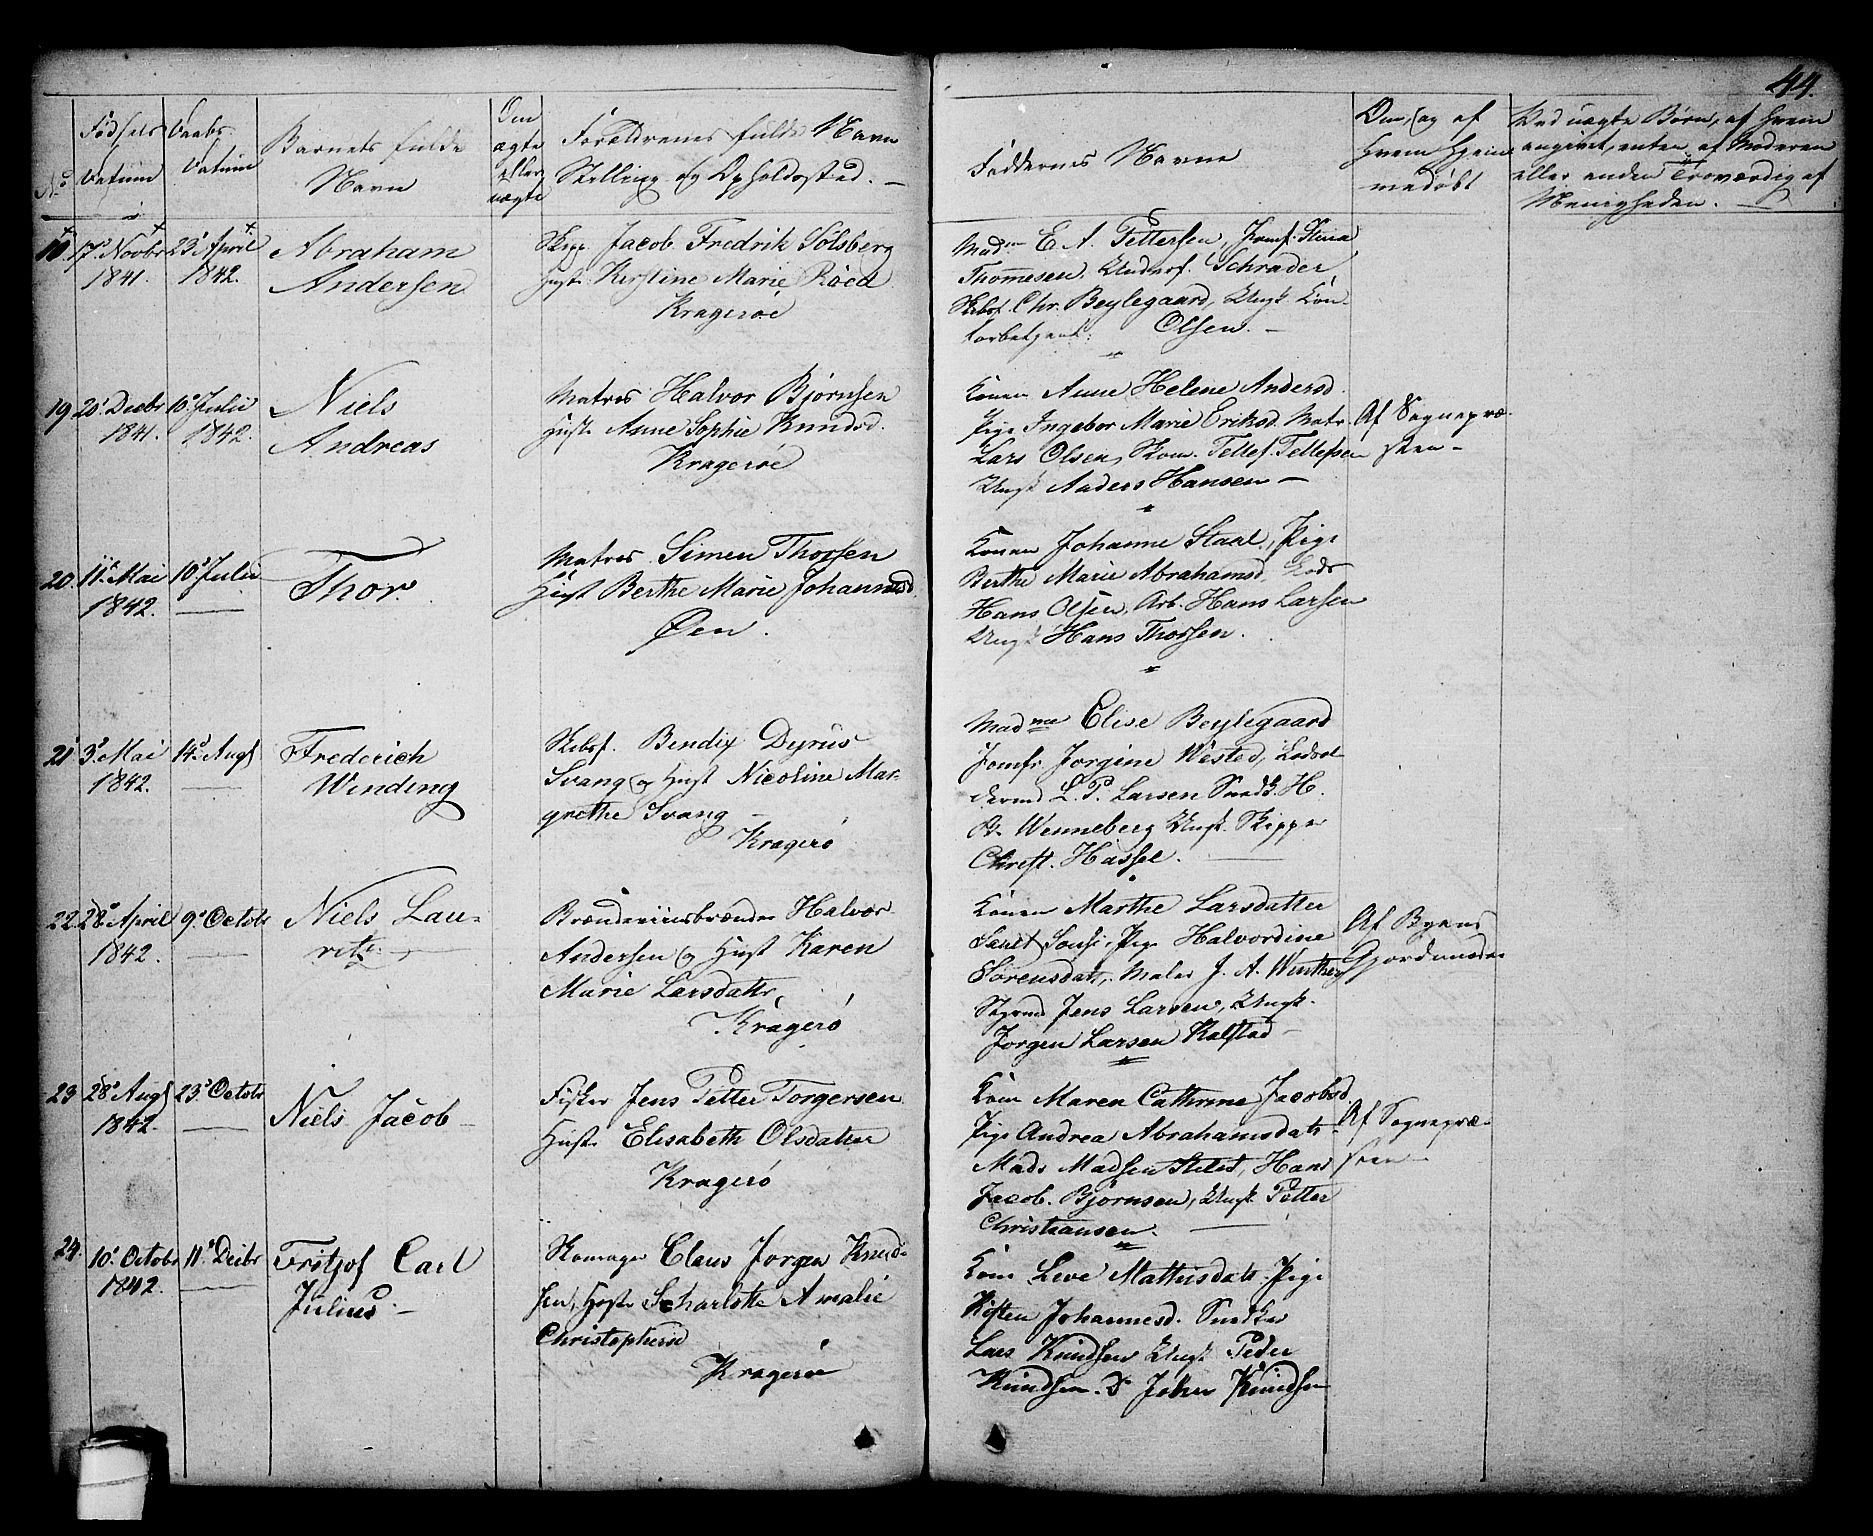 44.
No
Fødsels
Datum
Daabs-
Datum
Barnets fulde
Navn
Om
ægte
eller
uægte
Forældrenes fulde Navn
Stilling og Opholdssted. —
Faddernes Navne
Om, og af
hvem hjem
medøbt
Ved uægte Børn, af hvem
angivet, enten af Moderen
eller anden Troværdig af
Menigheden. —
18
17' Novbr
1841.
23' April
1842.
Abraham
Andersen
Skipp. Jacob Fredrik Solsberg
Hust. Kirstine Marie Röed
Kragerøe
Madme E. A. Pettersen, Jomf. Stina
Thommesen, Schrader,
Skibsf. Chr. Beylegaard, Ungk. Con-
torbetjent: Olsen. —
19
20' Decbr
1841.
10' Julii
1842.
Niels
Andreas
Matros Halvor Bjørnsen
Hustr. Anne Sophie Knudsd.
Kragerøe
Konen Anne Helene Andersd.
Pige Ingebor Marie Eriksd. Matr.
Lars Olsen, Skom. Tellef Tellefsen
Ungk Anders Hansen —
Af Sognepræ-
sten —
20.
11' Mai
1842.
10' Julii
Thor.
Matros Simen Thorsen
Hust Berthe Marie Johannesd
Øen.
Konen Johanne Staal, Pige
Berthe Marie Abrahamsd, Lods
Hans Olsen, Arb. Hans Larsen
Ungk Hans Thorsen.
21
3' Mai
1842.
14' Augs
Frederich
Winding
Skibsf. Bendix Dyrus
Svang og Hust Nicoline Mar-
grethe Svang —
Kragerö
Madme Elise Beylegaard
Jomfr. Jorgine Wested, Lodsol-
dermd L. P. Larsen Snedk. H.
P. Wenneberg Ungk. Skipper
Christ. Hassel.
22.
28' April
1842.
9' Octobr
Niels Lau-
ritz. —
Brændeviinsbrænder Halvor
Andersen og Hust Karen
Marie Larsdattr,
Kragerö
Konen Marthe Larsdatter
Pige Halvordine
Sørensdatr, Maler J. A. Winther,
Jens Larsen, Ungk.
Jorgen Larsen Kalstad —
Af Byens
Gjordmoder
23
28' Augs
1842.
23' Octobr
Niels Jacob —
Fisker Jens Petter Torgersen
Hustr Elisabeth Olsdatter
Kragerö
Kone Maren Cathrine Jacobsd.
Pige Andrea Abrahamsdatr
Mads Madsen Hans
Jacob Bjørnsen, Ungk. Petter
Christiansen.
Af Sognepræ-
sten —
24.
10' Octobr
1842.
11' Decbr
Fritjof Carl
Julius. —
Skomager Claus Jorgen Knud-
sen, Hustr Scharlotte Amalie
Christophersd
Kragerøe
Kone Leve Mathisdatr. Pige
Kisten Johannesd. Snedker
Lars Knudsen Ungk Peder
Knudsen. D Johan Knudsen